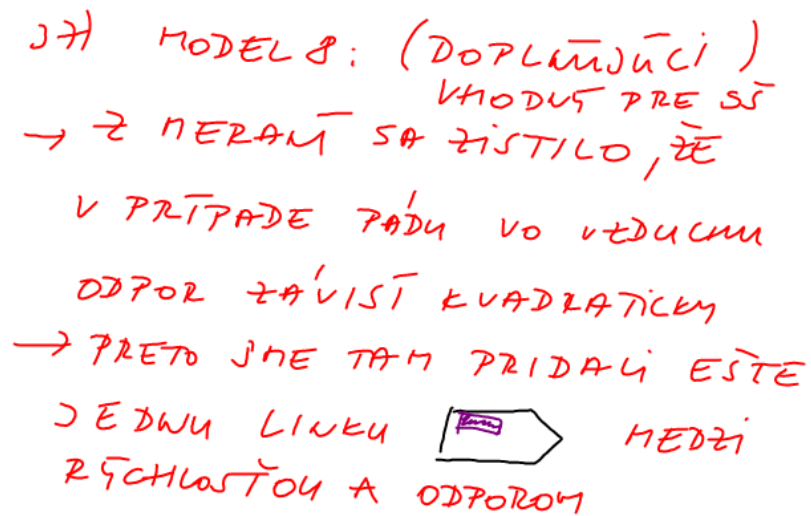 37) MODEL 8: (DOPLŇUJÚCI)
VHODNÝ PRE SŠ
→ Z MERANÍ SA ZISTILO, ŽE
V PRÍPADE PÁDU VO VZDUCHU
ODPOR ZÁVISÍ KVADRATICKY
→ PRETO SME TAM PRIDALI EŠTE
JEDNU LINKU MEDZI
RÝCHLOSŤOU A ODPOROM